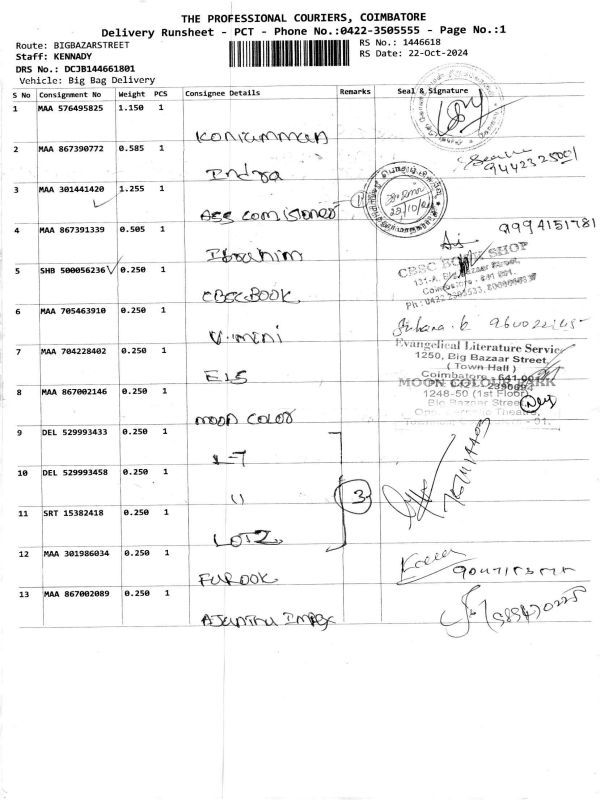 THE PROFESSIONAL COURIERS, COIMBATORE
Delivery Runsheet - PCT - Phone No.:0422-3505555 - Page No.:1
Route: BIGBAZARSTREET
RS No.: 1446618
Staff: KENNADY
RS Date: 22-Oct-2024
DRS No.: DCJB144661801
Vehicle: Big Bag Delivery
S No Consignment No Weight PCS Consignee Details Remarks Seal & Signature
1 MAA 576495825 1.150 1
2 MAA 867390772 0.585 1 Indra
3 MAA 301441420 1.255 1
4 MAA 867391339 0.505 1 Ibrahim
9994151781
5 SHB 500056236 0.250 1 CBSC BOOK
CBSC BOOK SHOP
131-A, Big Bazaar Street,
Coimbatore - 641 001.
6 MAA 705463910 0.250 1 V. mini
7 MAA 704228402 0.250 1 ELS
Evangelical Literature Service
1250, Big Bazaar Street,
( Town Hall )
Coimbatore - 641 001
8 MAA 867002146 0.250 1 MOON COLOR
MOON COLOUR PARK
1248-50 (1st Floor)
Big Bazaar Street
9 DEL 529993433 0.250 1 L-T
10 DEL 529993458 0.250 1 "
3
11 SRT 15382418 0.250 1
12 MAA 301986034 0.250 1 FUROOK
13 MAA 867002089 0.250 1